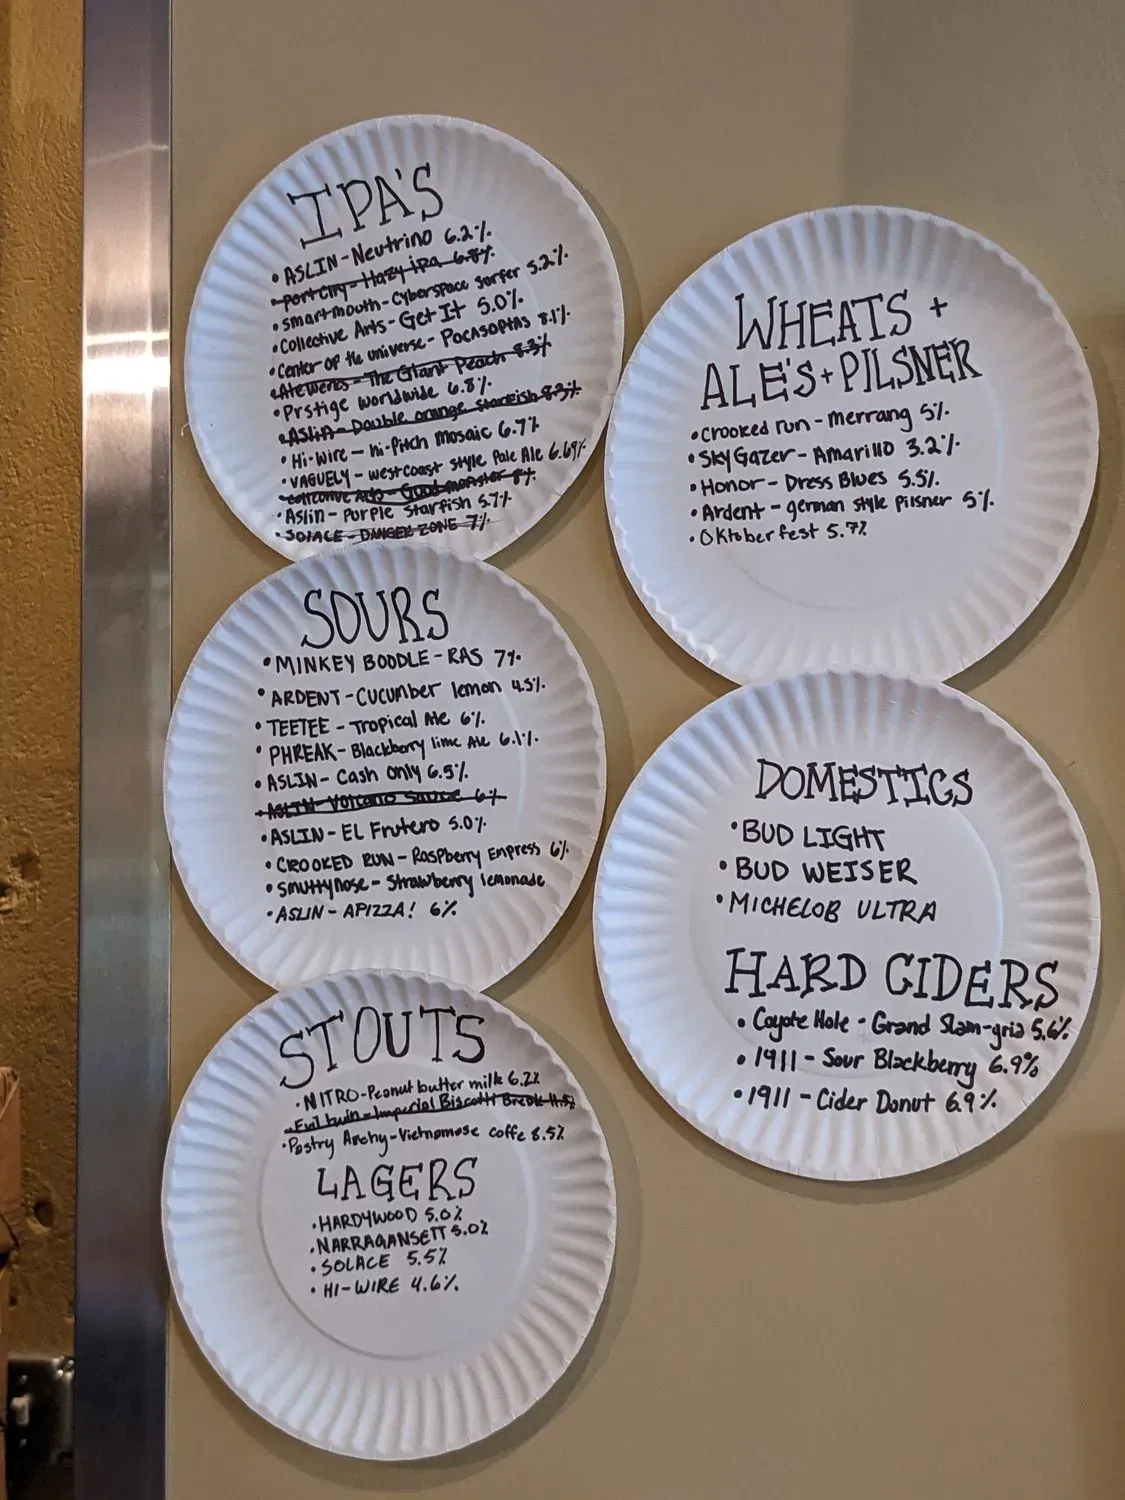 IPA'S
• ASLIN - Neutrino 6.2%
• Port City - Hazy ipa 6.8%
• smartmouth - Cyberspace surfer 5.2%
• Collective Arts - Get It 5.0%
• Center of the universe - Pocasoptas 8.1%
• Atewerks - The Giant Peach 8.3%
• Prstige worldwide 6.8%
• ASLIN - Double orange starfish 8.3%
• Hi-Wire - hi-Pitch mosaic 6.7%
• VAGUELY - westcoast style Pale Ale 6.69%
• Collective Arts - Good monster 8%
• Aslin - Purple starfish 5.7%
• SOLACE - DANGER ZONE 7%
SOURS
• MINKEY BOODLE - RAS 7%
• ARDENT - Cucumber lemon 4.5%
• TEETEE - Tropical Ale 6%
• PHREAK - Blackberry lime Ale 6.1%
• ASLIN - Cash only 6.5%
• ASLIN - Volcano Sauce 6%
• ASLIN - EL Frutero 5.0%
• CROOKED RUN - Raspberry Empress 6%
• Smuttynose - Strawberry lemonade
• ASLIN - APIZZA! 6%
STOUTS
• NITRO - Peanut butter milk 6.2%
• Evil twin - Imperial Biscotti Break 11.5%
• Pastry Archy - Vietnamese coffe 8.5%
LAGERS
• HARDYWOOD 5.0%
• NARRAGANSETT 5.0%
• SOLACE 5.5%
• HI-WIRE 4.6%
WHEATS +
ALE'S + PILSNER
• Crooked run - merrang 5%
• Sky Gazer - Amarillo 3.2%
• Honor - Dress Blues 5.5%
• Ardent - german style pilsner 5%
• Oktoberfest 5.7%
DOMESTICS
• BUD LIGHT
• BUD WEISER
• MICHELOB ULTRA
HARD CIDERS
• Coyote Hole - Grand Slam-gria 5.6%
• 1911 - Sour Blackberry 6.9%
• 1911 - Cider Donut 6.9%